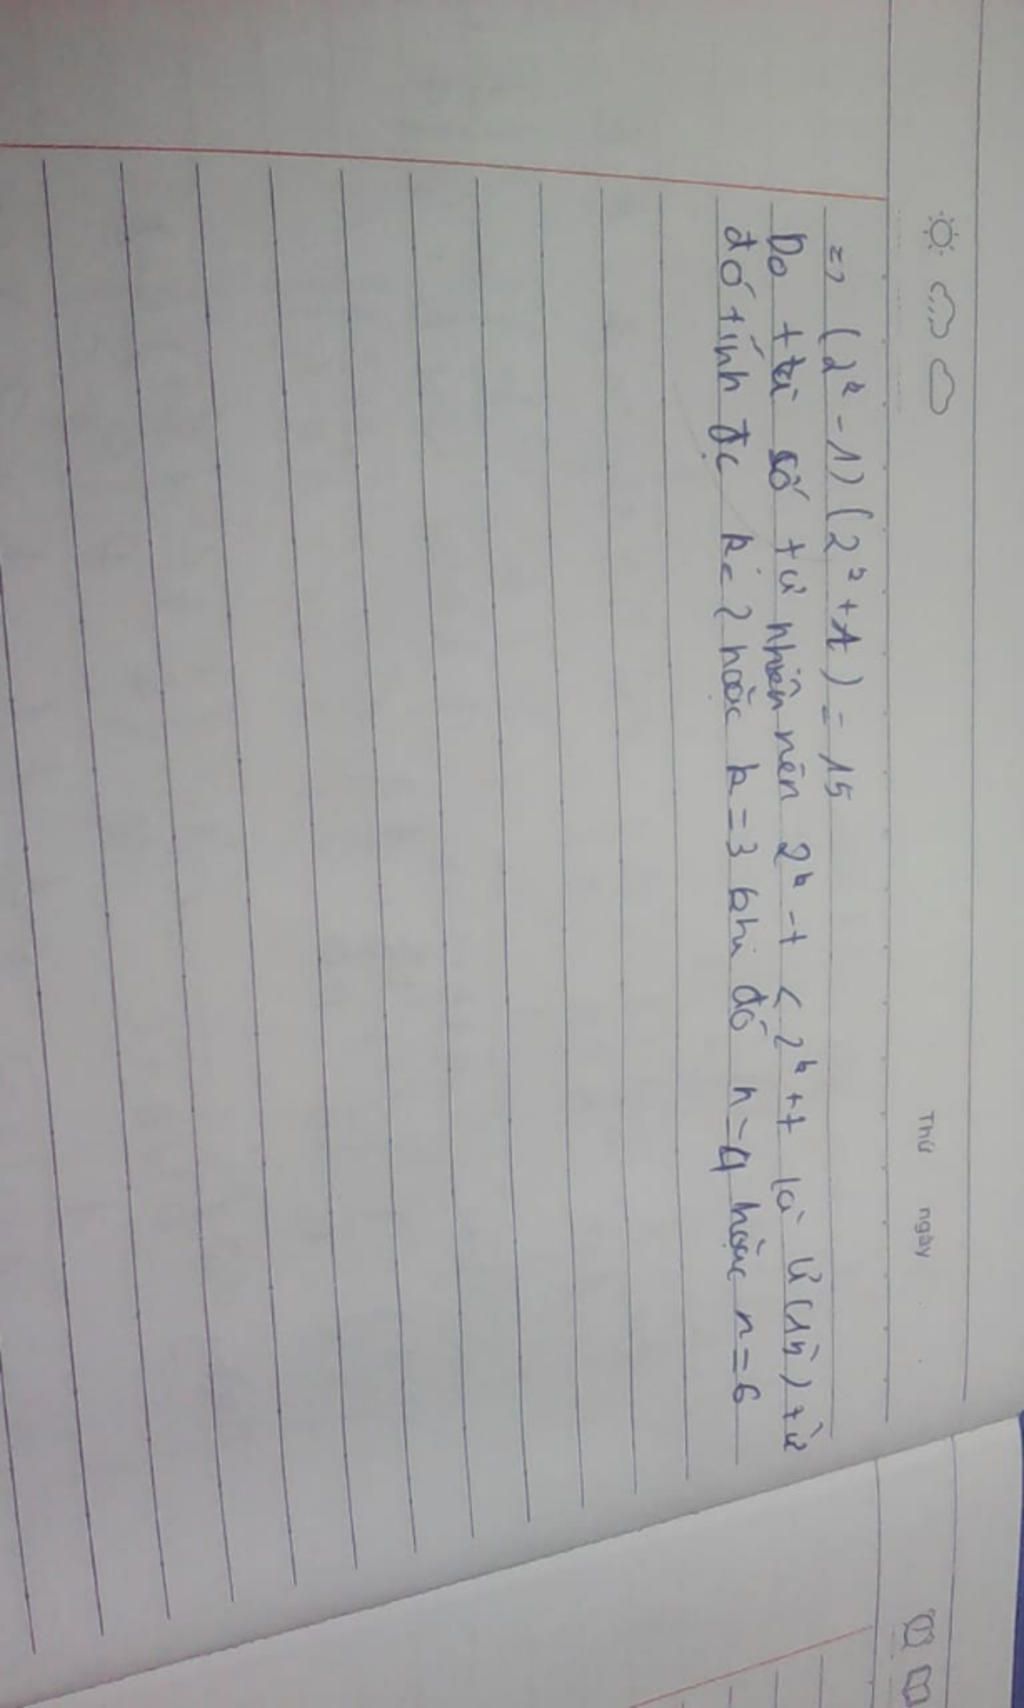 Thứ ngày
=> (2^k - 1) (2^k + 1) = 15
Do tử số tự nhiên nên 2^k - t < 2^k + t là Ư(15) từ
đó tính đc k = 2 hoặc k = 3 khi đó n = 4 hoặc n = 6